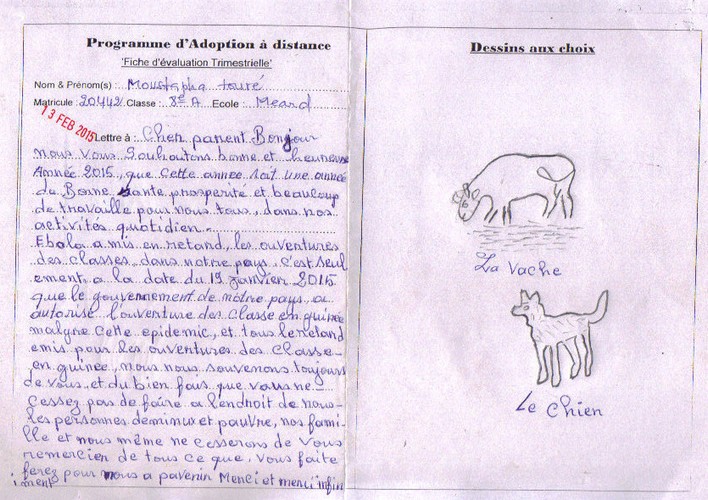 Programme d'Adoption à distance
'Fiche d'évaluation Trimestrielle'
Nom & Prénom(s) : Moustapha touré
Matricule : 20442 Classe : 8e A Ecole : Meard
13 FEB 2015
Lettre à : Cher parent Bonjour
nous Vous Souhoutons bonne et heureuse
Année 2015, que Cette annee soit une année
de Bonne sante prosperité et beaucoup
de travaille pour nous tous, dans nos
activités quotidien.
Ebola a mis en retand, les ouventures
des classes dans notre pays, c'est seul
ement a la date du 19 janvien 2015
que le gouvennement de notre pays, a
autorisé l'ouventure des classe en guinée
malgre cette epidemic, et tous le retand
emis pour les ouventures des classe
en guinée, nous nous souvenons toujours
de vous, et du bien fais que vous ne
cessez pas de faire a l'endroit de nous
les personnes deminux et pauvre, nos fami-
lle et nous même ne cesserons de vous
remercien de tous ce que, vous faite
ferez pour nous a pavenin Menci et menci infin
iment
Dessins aux choix
La Vache
Le chien